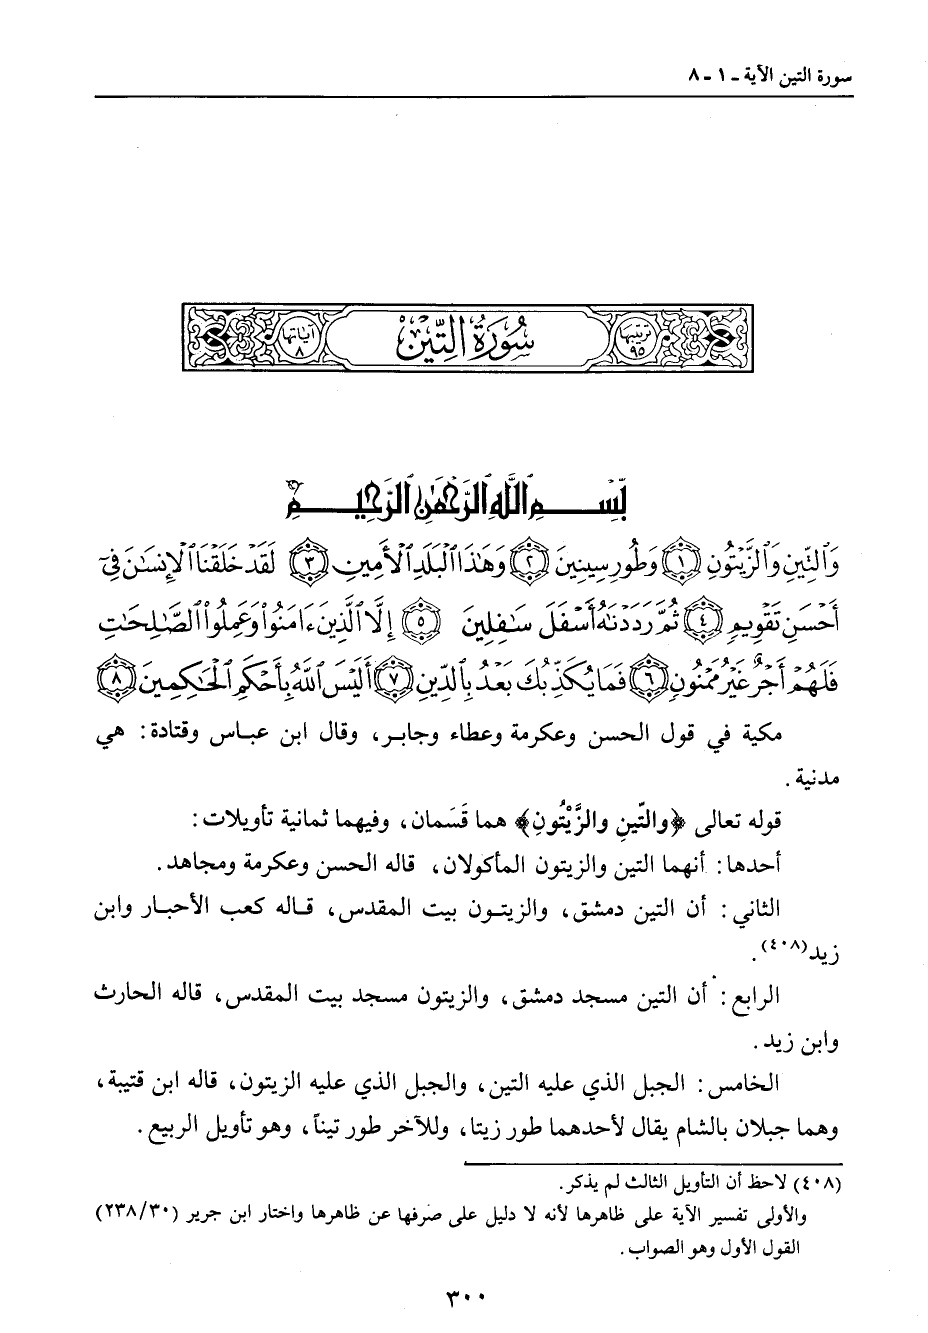 سورة التين الآية ـ ١ ـ ٨
ترتيبها ٩٥
سُورَةُ التِّينِ
آياتها ٨
بِسْمِ اللَّهِ الرَّحْمَٰنِ الرَّحِيمِ
وَٱلتِّينِ وَٱلزَّيْتُونِ ﴿١﴾ وَطُورِ سِينِينَ ﴿٢﴾ وَهَٰذَا ٱلْبَلَدِ ٱلْأَمِينِ ﴿٣﴾ لَقَدْ خَلَقْنَا ٱلْإِنسَٰنَ فِىٓ
أَحْسَنِ تَقْوِيمٍ ﴿٤﴾ ثُمَّ رَدَدْنَٰهُ أَسْفَلَ سَٰفِلِينَ ﴿٥﴾ إِلَّا ٱلَّذِينَ ءَامَنُوا۟ وَعَمِلُوا۟ ٱلصَّٰلِحَٰتِ
فَلَهُمْ أَجْرٌ غَيْرُ مَمْنُونٍ ﴿٦﴾ فَمَا يُكَذِّبُكَ بَعْدُ بِٱلدِّينِ ﴿٧﴾ أَلَيْسَ ٱللَّهُ بِأَحْكَمِ ٱلْحَٰكِمِينَ ﴿٨﴾
مكية في قول الحسن وعكرمة وعطاء وجابر، وقال ابن عباس وقتادة: هي
مدنية.
قوله تعالى ﴿والتّينِ والزَّيْتُونِ﴾ هما قَسَمان، وفيهما ثمانية تأويلات:
أحدها: أنهما التين والزيتون المأكولان، قاله الحسن وعكرمة ومجاهد.
الثاني: أن التين دمشق، والزيتون بيت المقدس، قاله كعب الأحبار وابن
زيد(٤٠٨).
الرابع: أن التين مسجد دمشق، والزيتون مسجد بيت المقدس، قاله الحارث
وابن زيد.
الخامس: الجبل الذي عليه التين، والجبل الذي عليه الزيتون، قاله ابن قتيبة،
وهما جبلان بالشام يقال لأحدهما طور زيتا، وللآخر طور تيناً، وهو تأويل الربيع.
(٤٠٨) لاحظ أن التأويل الثالث لم يذكر.
والأولى تفسير الآية على ظاهرها لأنه لا دليل على صرفها عن ظاهرها واختار ابن جرير (٢٣٨/٣٠)
القول الأول وهو الصواب.
٣٠٠